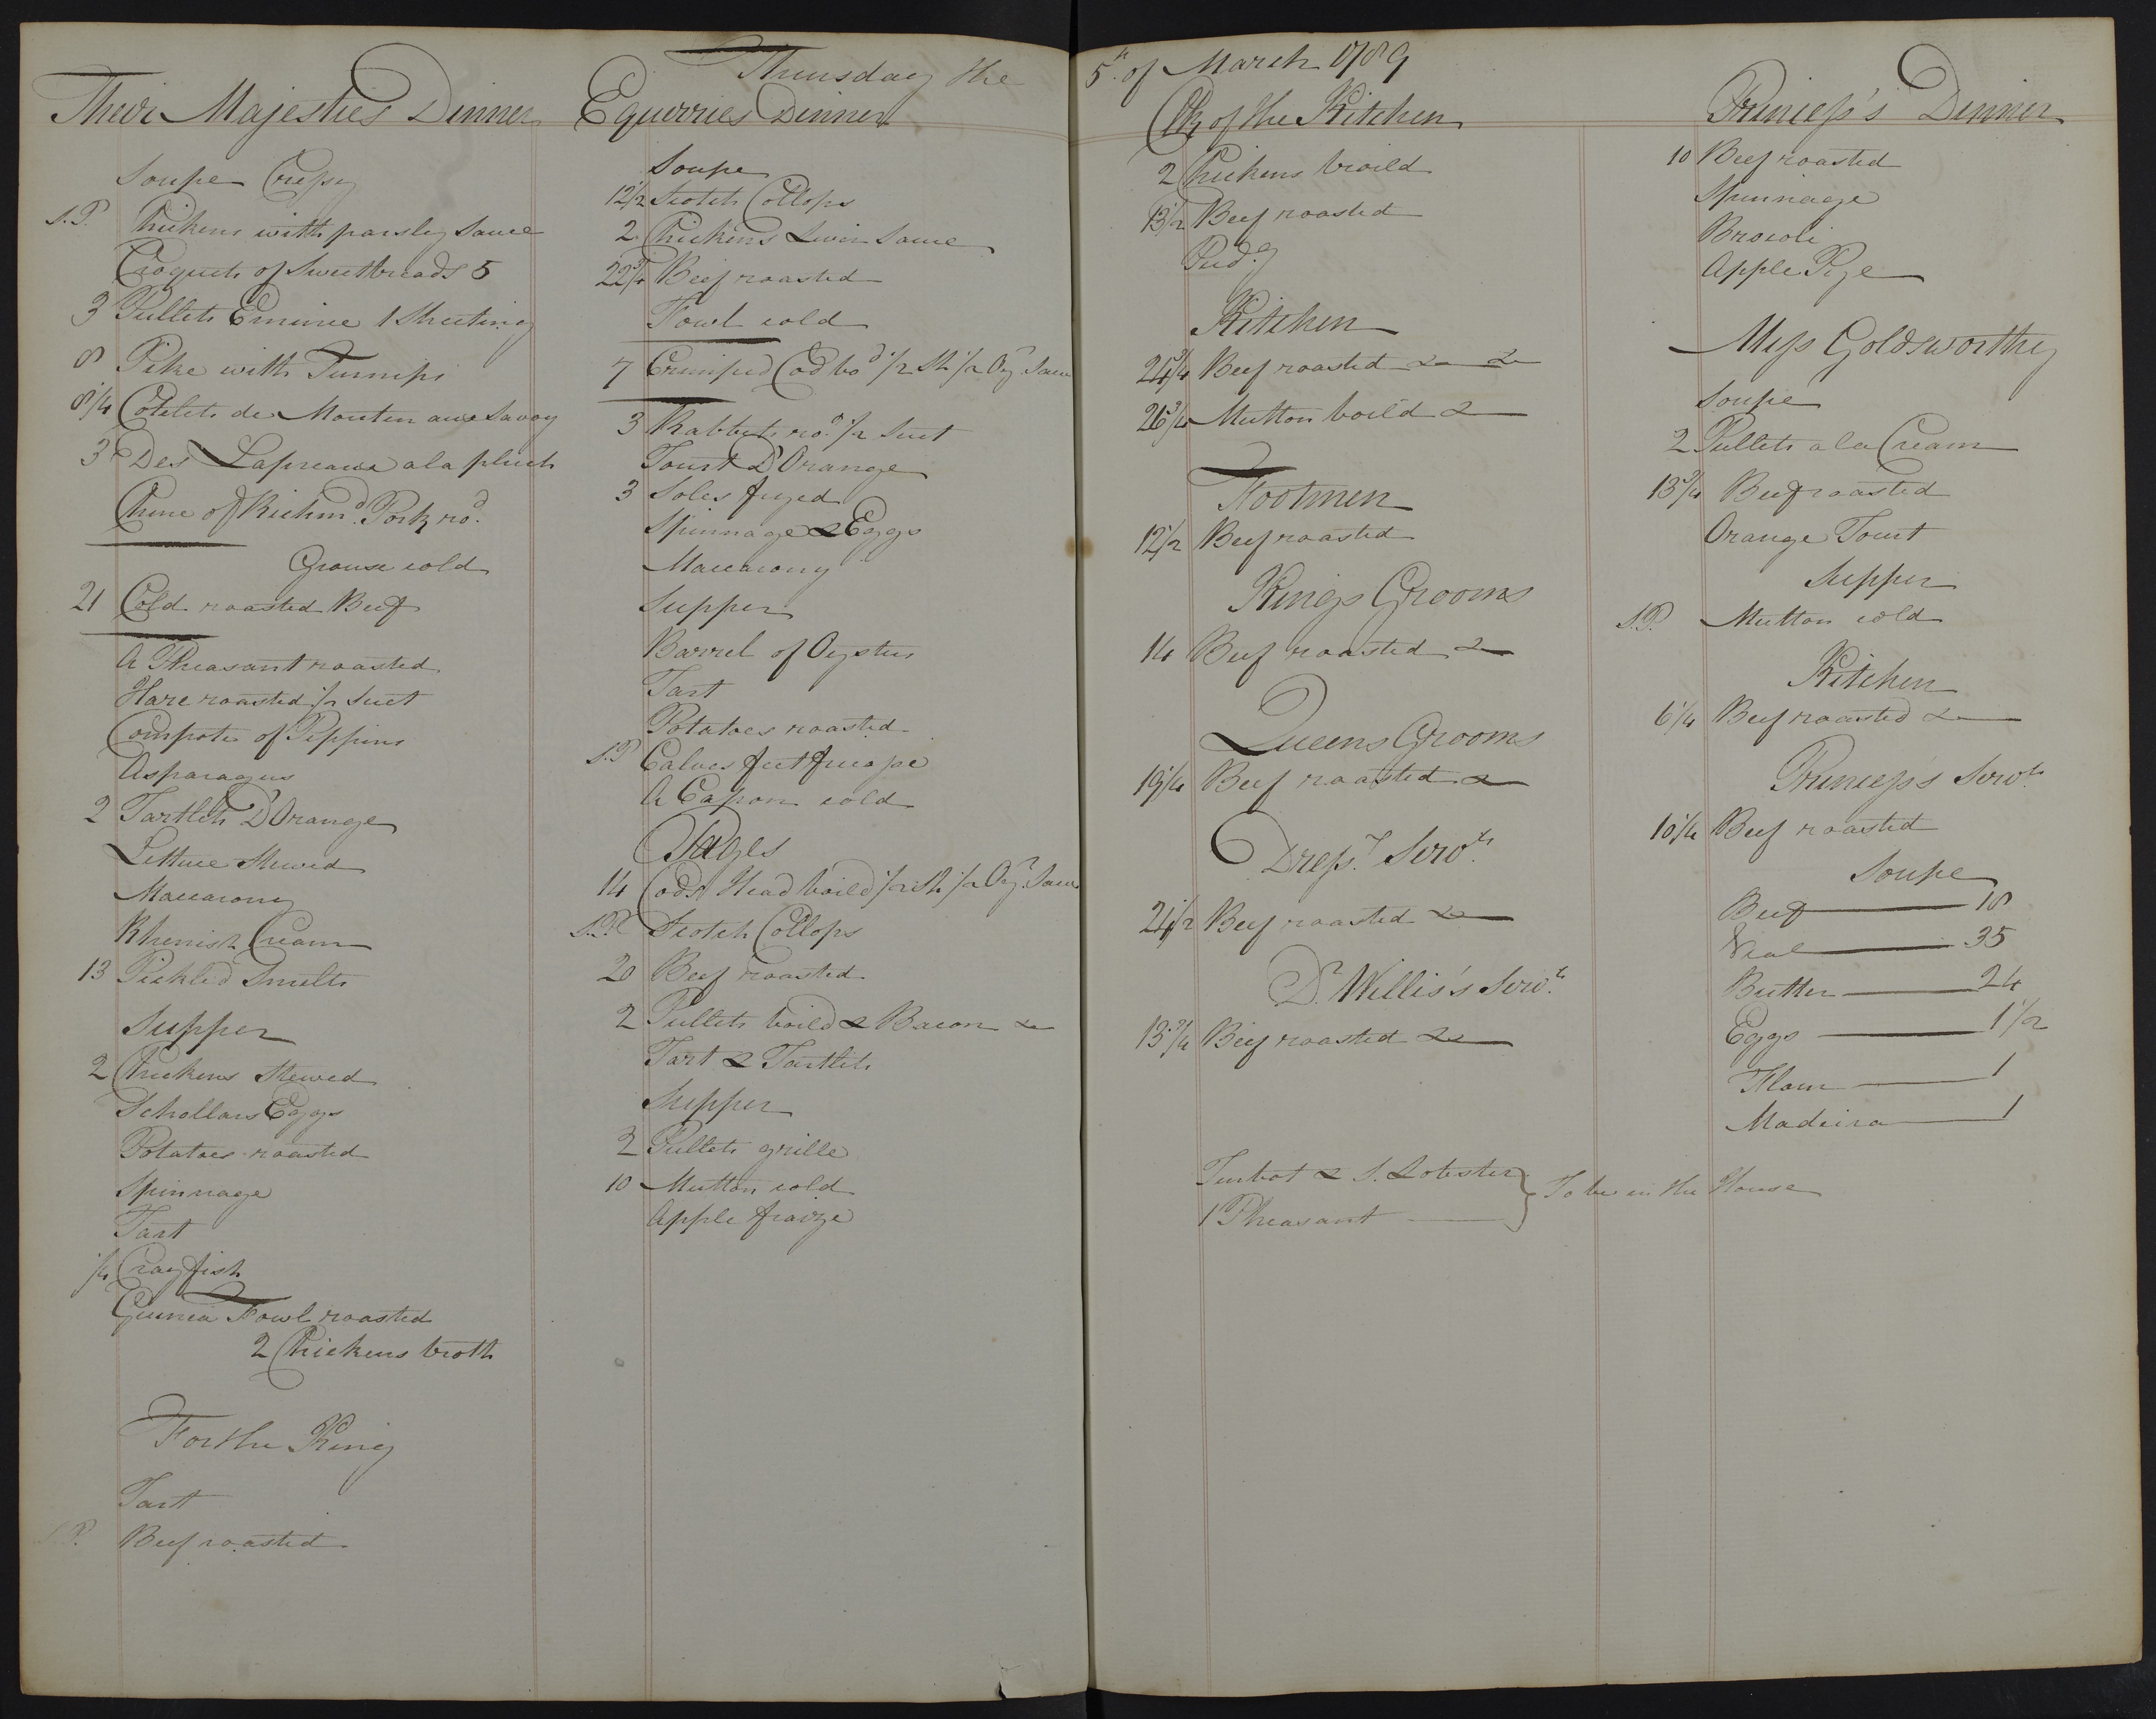 Thursday the 5th. of March 1789
Their Majesties Dinner
Soupe Cressy
S.P. Chickens with parsley Sauce
Croquets of Sweetbreads 5
3 Pullets Emince 1 Sheeting
8 Pike with Turnips
8 1/4 Cotelets de Mouton aux Savoy
3 Des Lapreaux a la pluch
Chine of Richmd. Pork rod.
Grouse cold
21 Cold roasted Beef
A Pheasant roasted
Hare roasted 1/2 Suet
Compote of Pippins
Asparagus
2 Tartlets D'Orange
Lettuce Stewed
Maccarony
Rhenish Cream
13 Pickled Smelts
Supper
2 Chickens Stewed
Schollars Eggs
Potatoes roasted
Spinnage
Tart
1/4 Crayfish
Guinea Fowl roasted
2 Chickens broth
For the King
Tart
S.P. Beef roasted
Equerries Dinner
Soupe
12 1/2 Scotch Collops
2 Chickens Liver Sauce
22 3/4 Beef roasted
Fowl cold
7 Crimped Cod bod 1/2 Sh 1/2 Oyr Sauce
3 Rabbits rod. 1/2 Suet
Tourt D'Orange
3 Soles fryed
Spinnage & Eggs
Maccarony
Supper
Barrel of Oysters
Tart
Potatoes roasted
S.P. Calves feet
A Capon cold
Pages
14 Cods Head boild 1/2 Sh 1/2 Oyr. Sauce
S.P. Scotch Collops
20 Beef roasted
2 Pullets boild & Bacon &c
Tart & Tartlets
Supper
2 Pullets grille
10 Mutton cold
Apple fraize
Clk of the Kitchen
2 Chickens broild
13 1/2 Beef roasted
Pudg.
Kitchen
24 3/4 Beef roasted &c &c
26 3/4 Mutton boild &c
Footmen
12 1/2 Beef roasted
Kings Grooms
14 Beef roasted &c
Queens Grooms
19 1/4 Beef roasted &c
Dressrs. Servts.
21 1/2 Beef roasted &c
Dr. Willis's Servts.
13 3/4 Beef roasted &c
Turbot & S. Lobster
1 Pheasant
To be in the House
Princess's Dinner
10 Beef roasted
Spinnage
Brocoli
Apple Pye
Miss Goldsworthy
Soupe
2 Pullets a la Cream
13 3/4 Beef roasted
Orange Tourt
Supper
S.P. Mutton cold
Kitchen
6 1/4 Beef roasted &c
Princess's Servts.
10 1/4 Beef roasted
Soupe
Beef 18
Veal 35
Butter 24
Eggs 1 1/2
Flour 1
Madeira 1